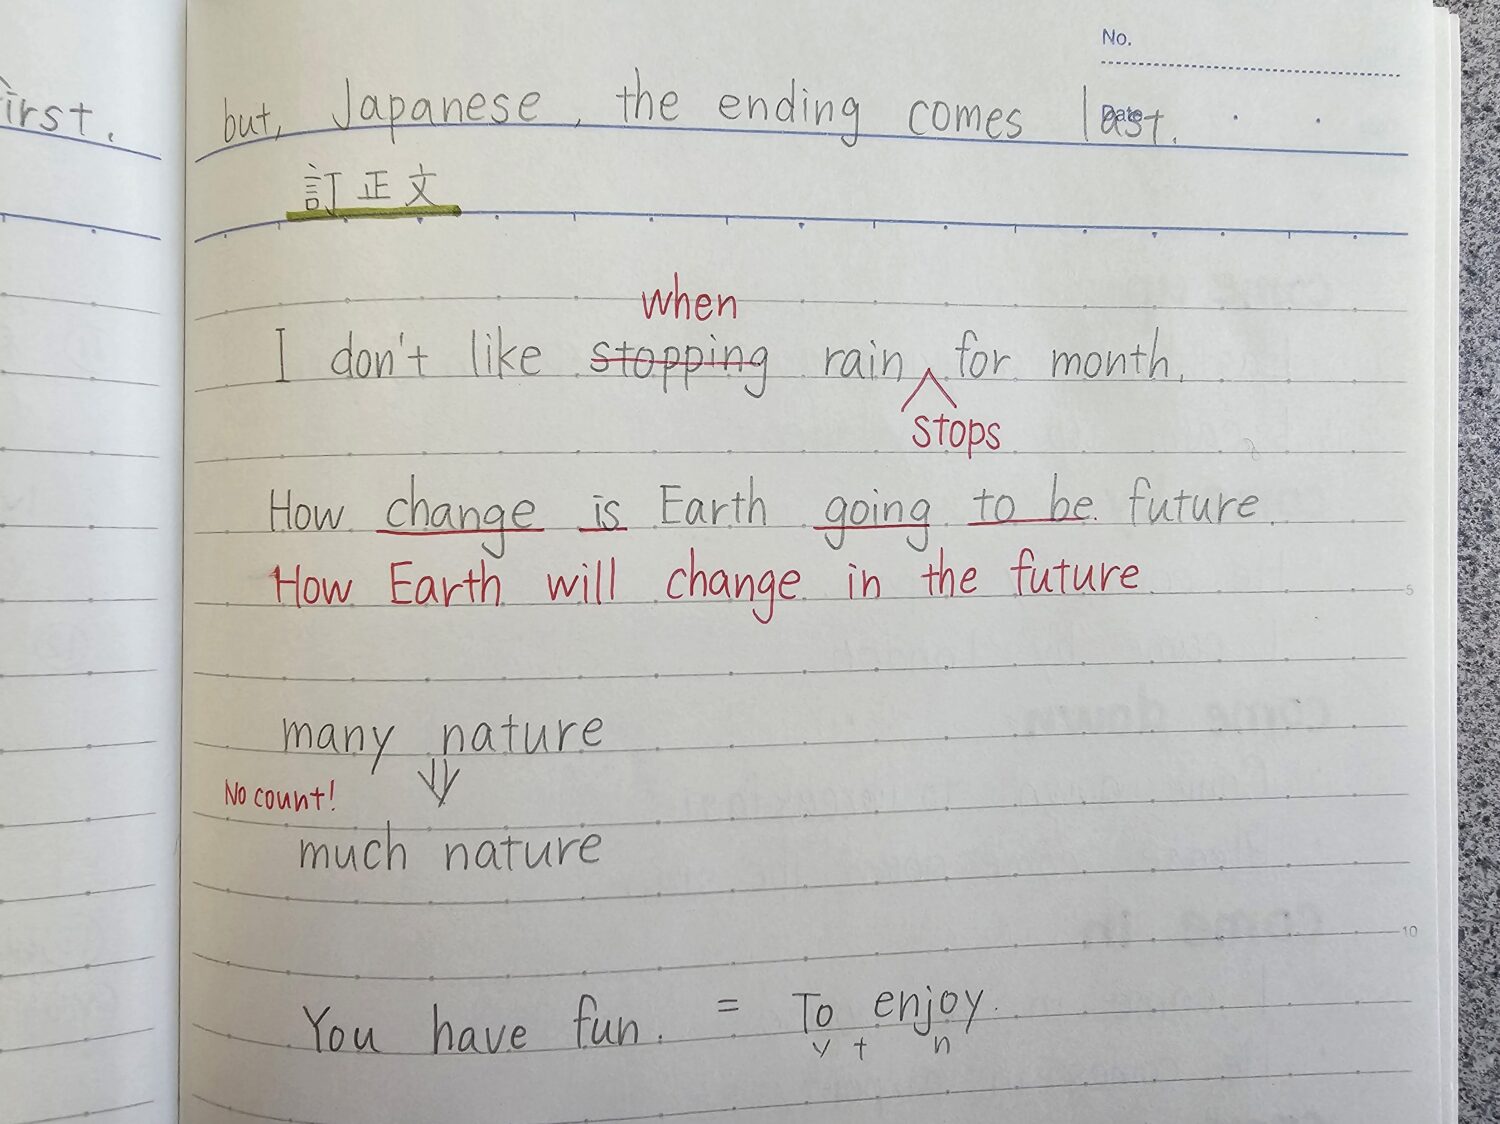 irst.
No.
but, Japanese, the ending comes last.
Date
訂正文
when
I don't like stopping rain for month.
stops
How change is Earth going to be future.
How Earth will change in the future
5
many nature
No count!
much nature
10
You have fun. = To enjoy.
v + n